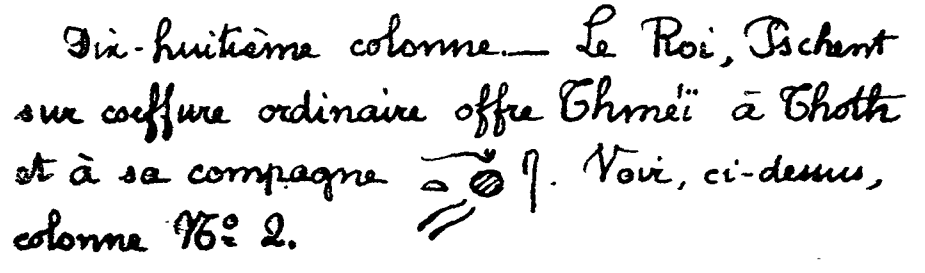 Dix-huitième colonne. — Le Roi, Pschent
sur coeffure ordinaire offre Thméï à Thoth
et à sa compagne . Voir, ci-dessus,
colonne Nº 2.